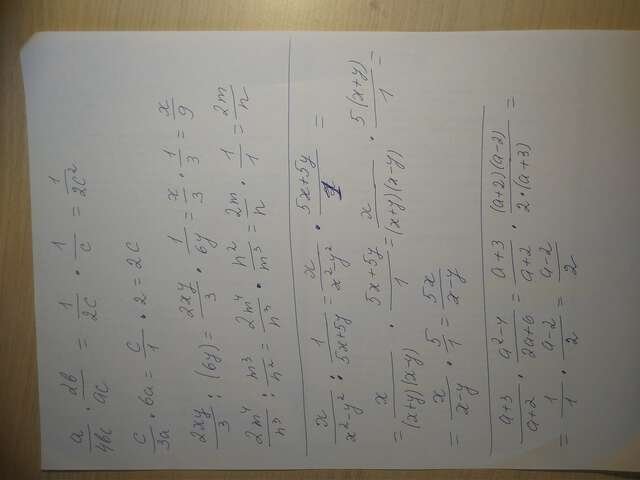 a/4bc · 2b/ac = 1/2c · 1/c = 1/2c²
c/3a · 6a = c/1 · 2 = 2c
2xy/3 : (6y) = 2xy/3 · 1/6y = x/3 · 1/3 = x/9
2m⁴/n³ : m³/n² = 2m⁴/n³ · n²/m³ = 2m/n · 1/1 = 2m/n
x/x²-y² : 1/5x+5y = x/x²-y² · 5x+5y/1 =
= x/(x+y)(x-y) · 5x+5y/1 = x/(x+y)(x-y) · 5(x+y)/1 =
= x/x-y · 5/1 = 5x/x-y
a+3/a+2 · a²-4/2a+6 = a+3/a+2 · (a+2)(a-2)/2·(a+3) =
= 1/1 · a-2/2 = a-2/2